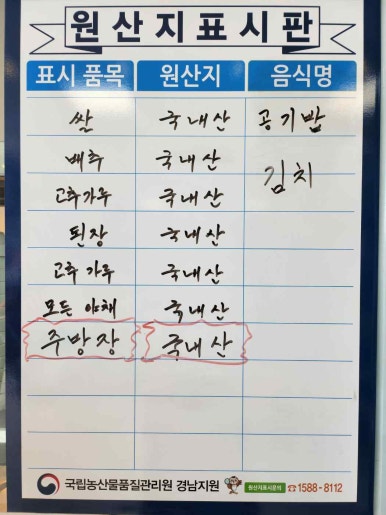 원산지표시판
표시 품목 원산지 음식명
쌀 국내산 공기밥
배추 국내산 김치
고추가루 국내산
된장 국내산
고추가루 국내산
모든 야채 국내산
주방장 국내산
국립농산물품질관리원 경남지원 원산지표시문의 ☎1588-8112